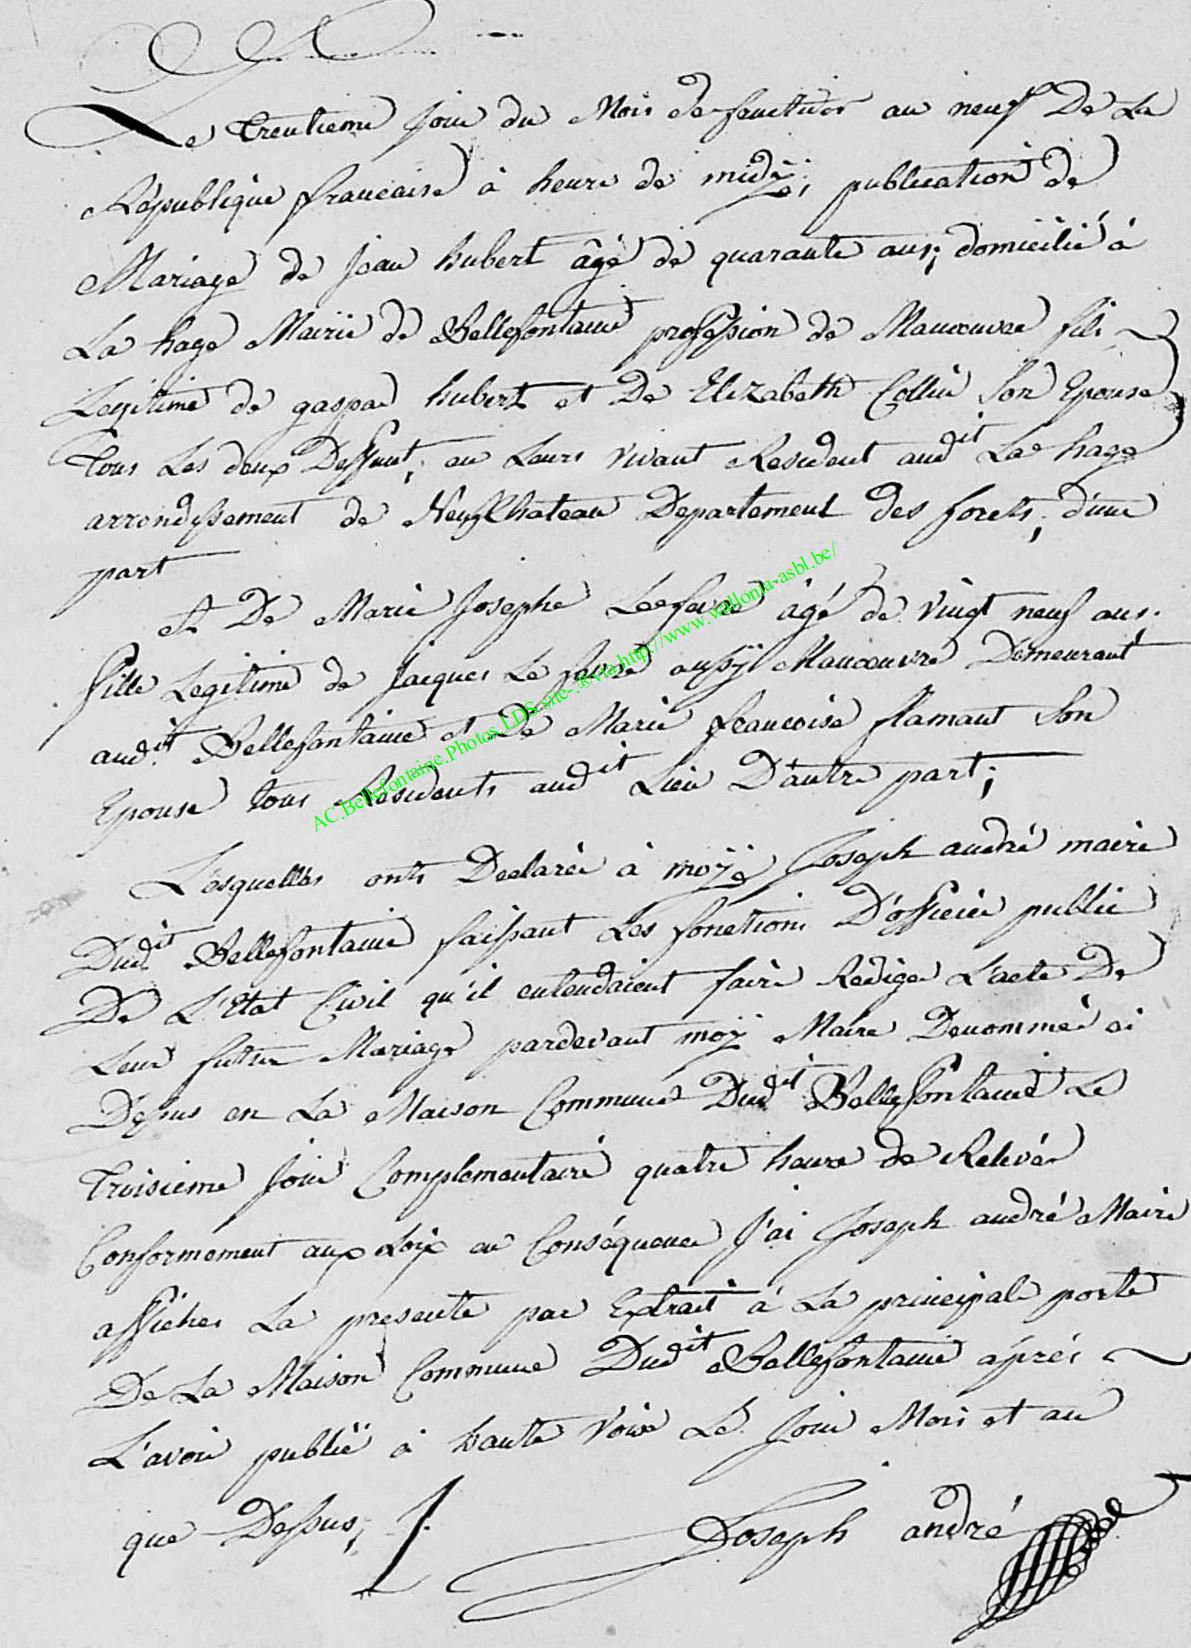 Le Trentieme jour du Mois de fructidor an neuf De La
République francaise à heure de midÿ; publication de
Mariage de Jean hubert âgé de quarante ans; domicilié à
La hage Mairie de Bellefontaine profession de Manoeuvre fils
Legitime de gaspar hubert et De Elizabeth Collin Son Epouse
Tous Les deux Deffunt; en Leurs vivant Resident audit La hage
arrondissement de Neufchateau Departement des forets; d'une
part
et De Marie Josephe Lefevre âgé de vingt neuf ans.
fille Legitime de Jacques Le fevre aussÿ Manoeuvre Demeurant
audit Bellefontaine et De Marie francoise flamant Son
Epouse tous Residents audit Lieu D'autre part;
Lesquelles onts Declarée à moÿ Joseph andré maire
Dudit Bellefontaine faissant Les fonctions D'officier public
De L'Etat Civil qu'il entendaient faire Rediger L'acte De
Leur futur Mariage pardevant moÿ Maire Denommée ci
Dessus en La Maison Commune Dudit Bellefontaine Le
Troisieme Jour Complementaire quatre heure de Relevée
Conformement aux Loix en Conséquence J'ai Joseph andré Maire
afficher La presente par Extrait à La principale porte
De La Maison Commune Dudit Bellefontaine aprés
L'avoir publié à haute voix Le Jour Mois et an
que Dessus;
Joseph andré
AC.Bellefontaine.Photos.LDS.site-.®via.http://www.wallonia-asbl.be/